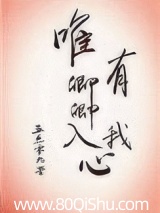 有我
唯卿卿入心
五点零九著
www.80QiShu.com